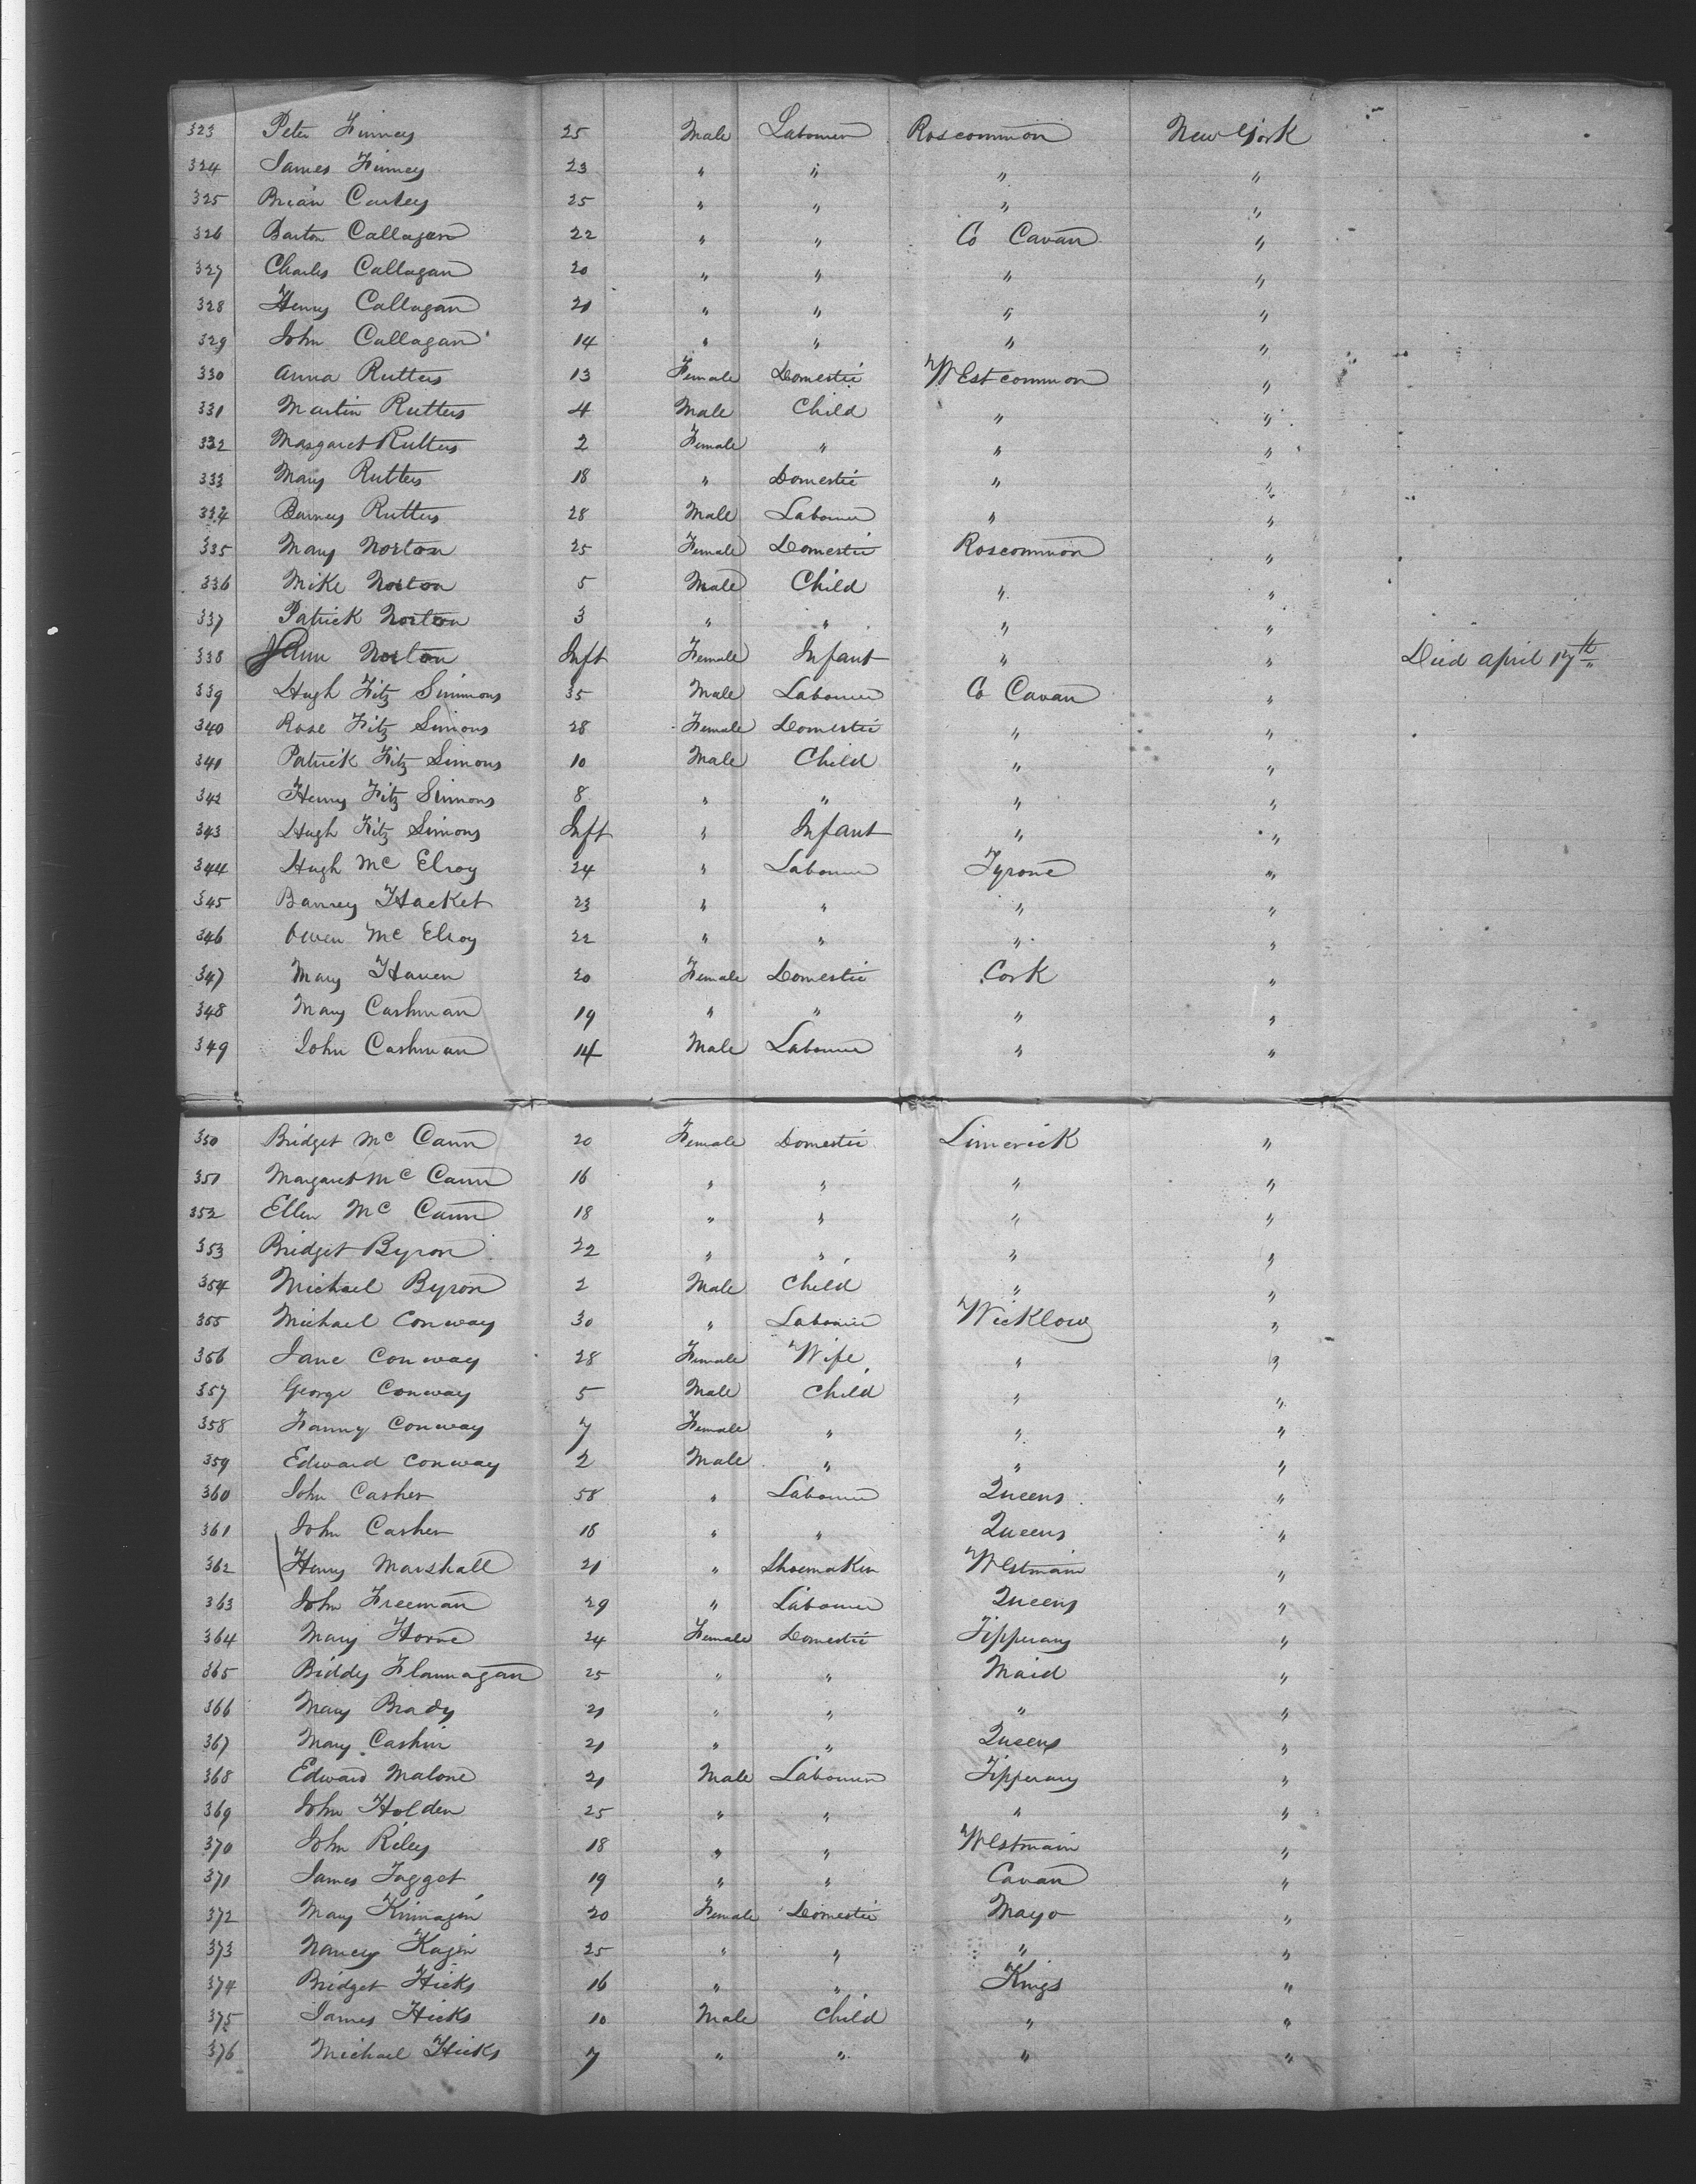 323 Peter Finney 25 Male Labourer Roscommon New York
324 James Finney 23 " " " "
325 Brian Carley 25 " " " "
326 Barton Callagan 22 " " Co Cavan "
327 Charles Callagan 20 " " " "
328 Henry Callagan 21 " " " "
329 John Callagan 14 " " " "
330 Anna Rutters 13 Female Domestic WEstcommon "
331 Martin Rutters 4 Male Child " "
332 Margaret Rutters 2 Female " " "
333 Mary Rutters 18 " Domestic " "
334 Barney Rutters 28 Male Labourer " "
335 Mary Norton 25 Female Domestic Roscommon "
336 Mike Norton 5 Male Child " "
337 Patrick Norton 3 " " " "
338 Ann Norton Inft Female Infant " " Died April 17th
339 Hugh Fitz Simmons 35 Male Labourer Co Cavan "
340 Rose Fitz Simons 28 Female Domestic " "
341 Patrick Fitz Simons 10 Male Child " "
342 Henry Fitz Simons 8 " " " "
343 Hugh Fitz Simons Inft " Infant " "
344 Hugh Mc Elroy 24 " Labourer Tyrone "
345 Barney Hacket 23 " " " "
346 Owen Mc Elroy 22 " " " "
347 Mary Haven 20 Female Domestic Cork "
348 Mary Cashman 19 " " " "
349 John Cashman 14 Male Labourer " "
350 Bridget Mc Cann 20 Female Domestic Limerick "
351 Margaret Mc Cann 16 " " " "
352 Ellen Mc Cann 18 " " " "
353 Bridget Byron 22 " " " "
354 Michael Byron 2 Male Child " "
355 Michael Conway 30 " Labourer Wicklow "
356 Jane Conway 28 Female Wife " "
357 George Conway 5 Male Child " "
358 Fanny Conway 7 Female " " "
359 Edward Conway 2 Male " " "
360 John Casher 58 " Labourer Queens "
361 John Casher 18 " " Queens "
362 Henry Marshall 21 " Shoemaker Westmain "
363 John Freeman 29 " Labourer Queens "
364 Mary Horne 24 Female Domestic Tipperary "
365 Biddy Flannagan 25 " " Maid "
366 Mary Brady 21 " " " "
367 Mary Cashin 21 " " Queens "
368 Edward Malone 21 Male Labourer Tipperary "
369 John Holden 25 " " " "
370 John Riley 18 " " Westmain "
371 James Tagget 19 " " Cavan "
372 Mary Kinnagin 20 Female Domestic Mayo "
373 Nancy Kagin 25 " " " "
374 Bridget Hicks 16 " " Kings "
375 James Hicks 10 Male Child " "
376 Michael Hicks 7 " " " "